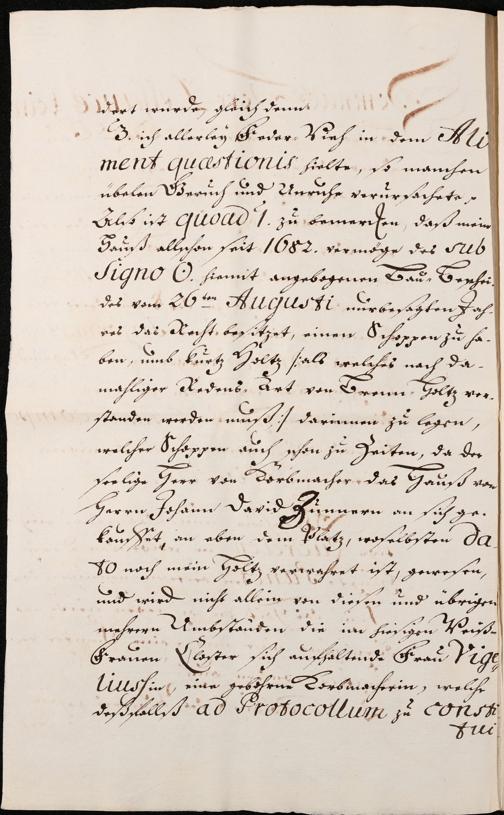 dert wurde, gleich denn
3. ich allerley Feder-Vieh in dem Ali
ment quæstionis hielte, so manchen
übelen Geruch und Unruhe verursachete.
Als ist quoad 1. zu bemercken, daß mein
Hauß allschon seit 1682. vermöge des sub
Signo O. hiemit angebogenen Bau-Beschei-
des vom 26ten Augusti nurbesagten Jah-
res das Recht besitzet, einen Schoppen zu ha-
ben, umb kurtz Holtz /: als welches nach da-
mahliger Redens-Art von Brenn-Holtz ver-
standen werden muß :/ darinnen zu legen,
welcher Schoppen auch schon zu Zeiten, da der
seelige Herr von Korbmacher das Hauß von
Herrn Johann David Zunnern an sich ge-
kauffet, an eben dem Platz, woselbsten da
to noch mein Holtz verwahret ist, gewesen,
und wird nicht allein von diesen und übrigen
mehrern Umbständen die im hiesigen Weiß-
Frauen Closter sich aufhaltende Frau Vige
liussin, eine gebohrne Korbmacherin, welche
deßfallß ad Protocollum zu consti
tui